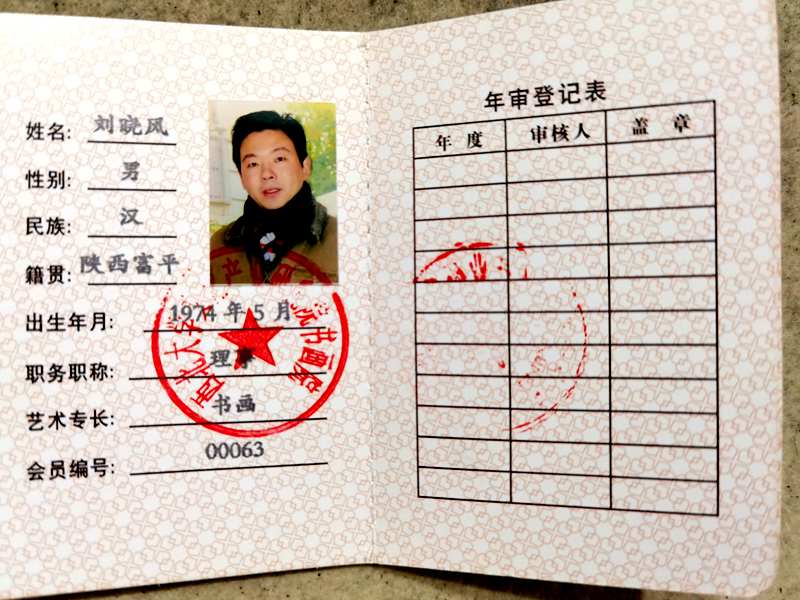 姓名: 刘晓风
性别: 男
民族: 汉
籍贯: 陕西富平
出生年月: 1974年5月
职务职称: 理事
艺术专长: 书画
会员编号: 00063
西北大学 产业 书画院
年审登记表
年度 审核人 盖章